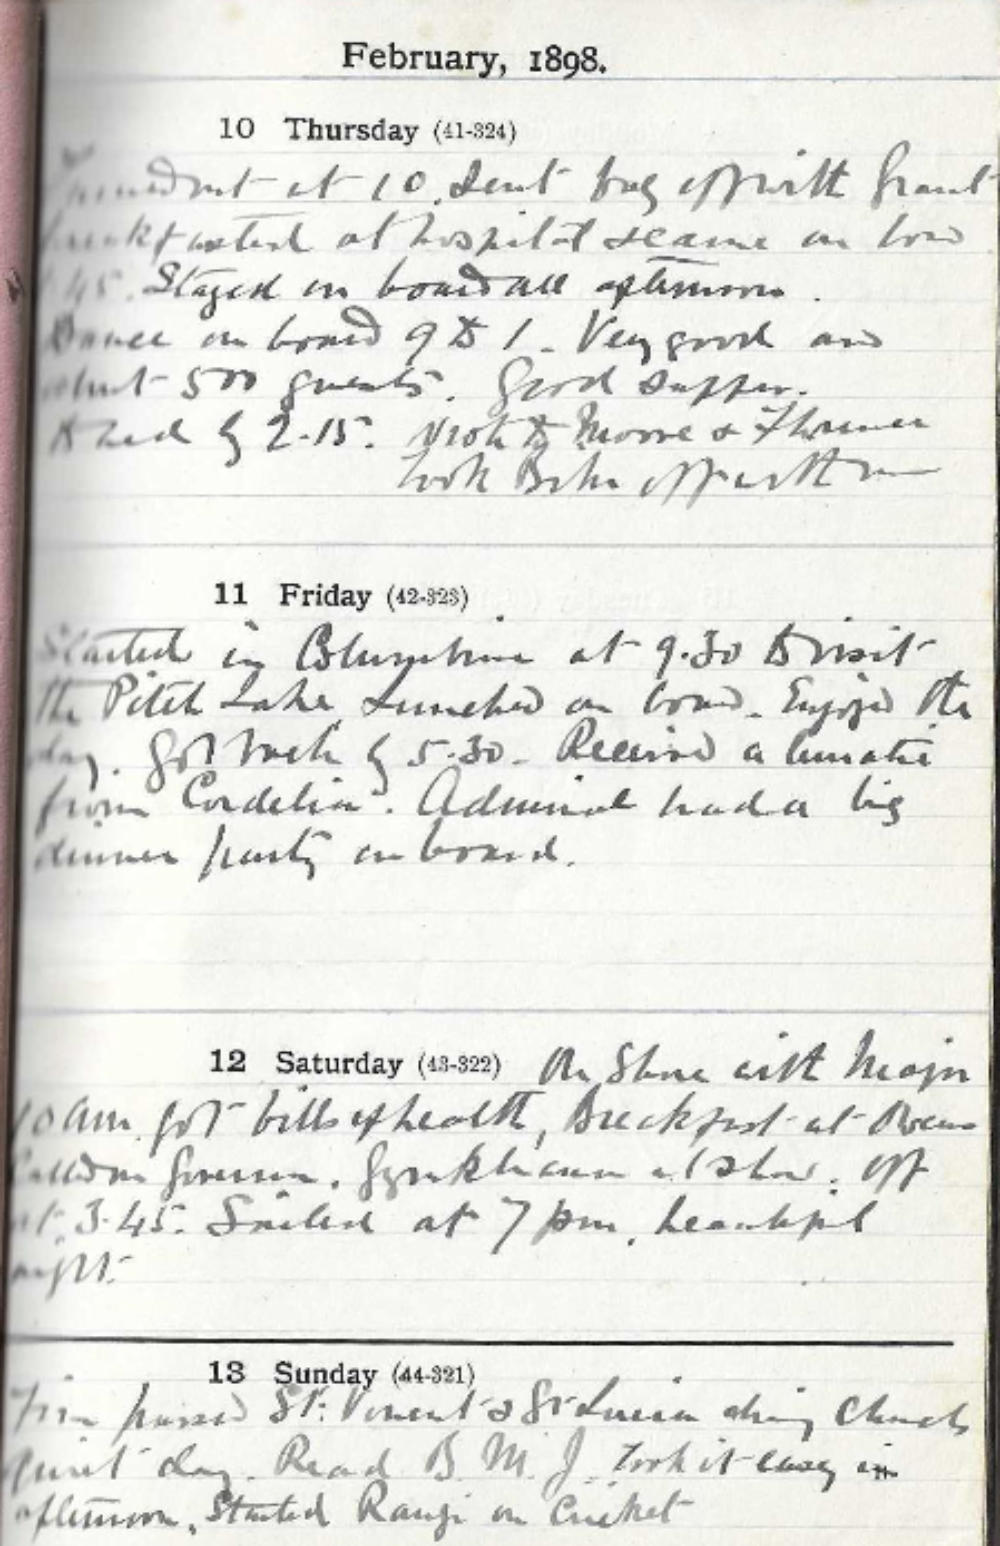 February, 1898.
10 Thursday (41-324)
Turned out at 10. Sent bag off with Grant
breakfasted at hospital & came on board
1.45. Stayed on board all afternoon.
Dance on board 9 to 1. Very good and
about 500 guests. Good supper.
to bed by 2-15. Moore &
took off with
11 Friday (42-323)
Started in Columbine at 9.30 to visit
the Pitch Lake. Lunched on board. Enjoyed the
day. Got back by 5.30. Received a lunatic
from Cordelia. Admiral had a big
dinner party on board.
12 Saturday (43-322) On Shore with Major
10 am. got bills of health, Breakfast at
Called on Governor. Gymkhana at 2 show. Off
at 3.45. Sailed at 7 pm. beautiful
night.
13 Sunday (44-321)
passed St. Vincent & St Lucia during Church
quiet day. Read B. M. J. Took it easy in
afternoon. Started Ranji on Cricket